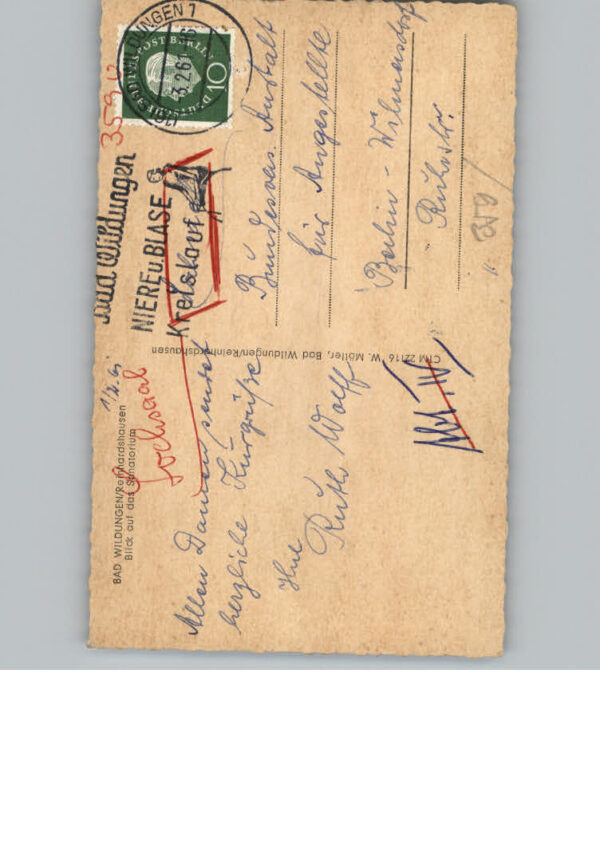 BAD WILDUNGEN/Reinhardshausen
Blick auf das Sanatorium
1/2.61
Lochsaal
Allen Damen sendet
herzliche Kurgrüße
Ihre
Ruth Wolff
CIM 22116 W. Möller, Bad Wildungen/Reinhardshausen
Bad Wildungen
NIERE u. BLASE
WILDUNGEN 1
3.2.61
DEUTSCHE BUNDESPOST BERLIN
10
Bundesvers. Anstalt
für Angestellte
Berlin - Wilmersdorf
Ruhrstr.
359